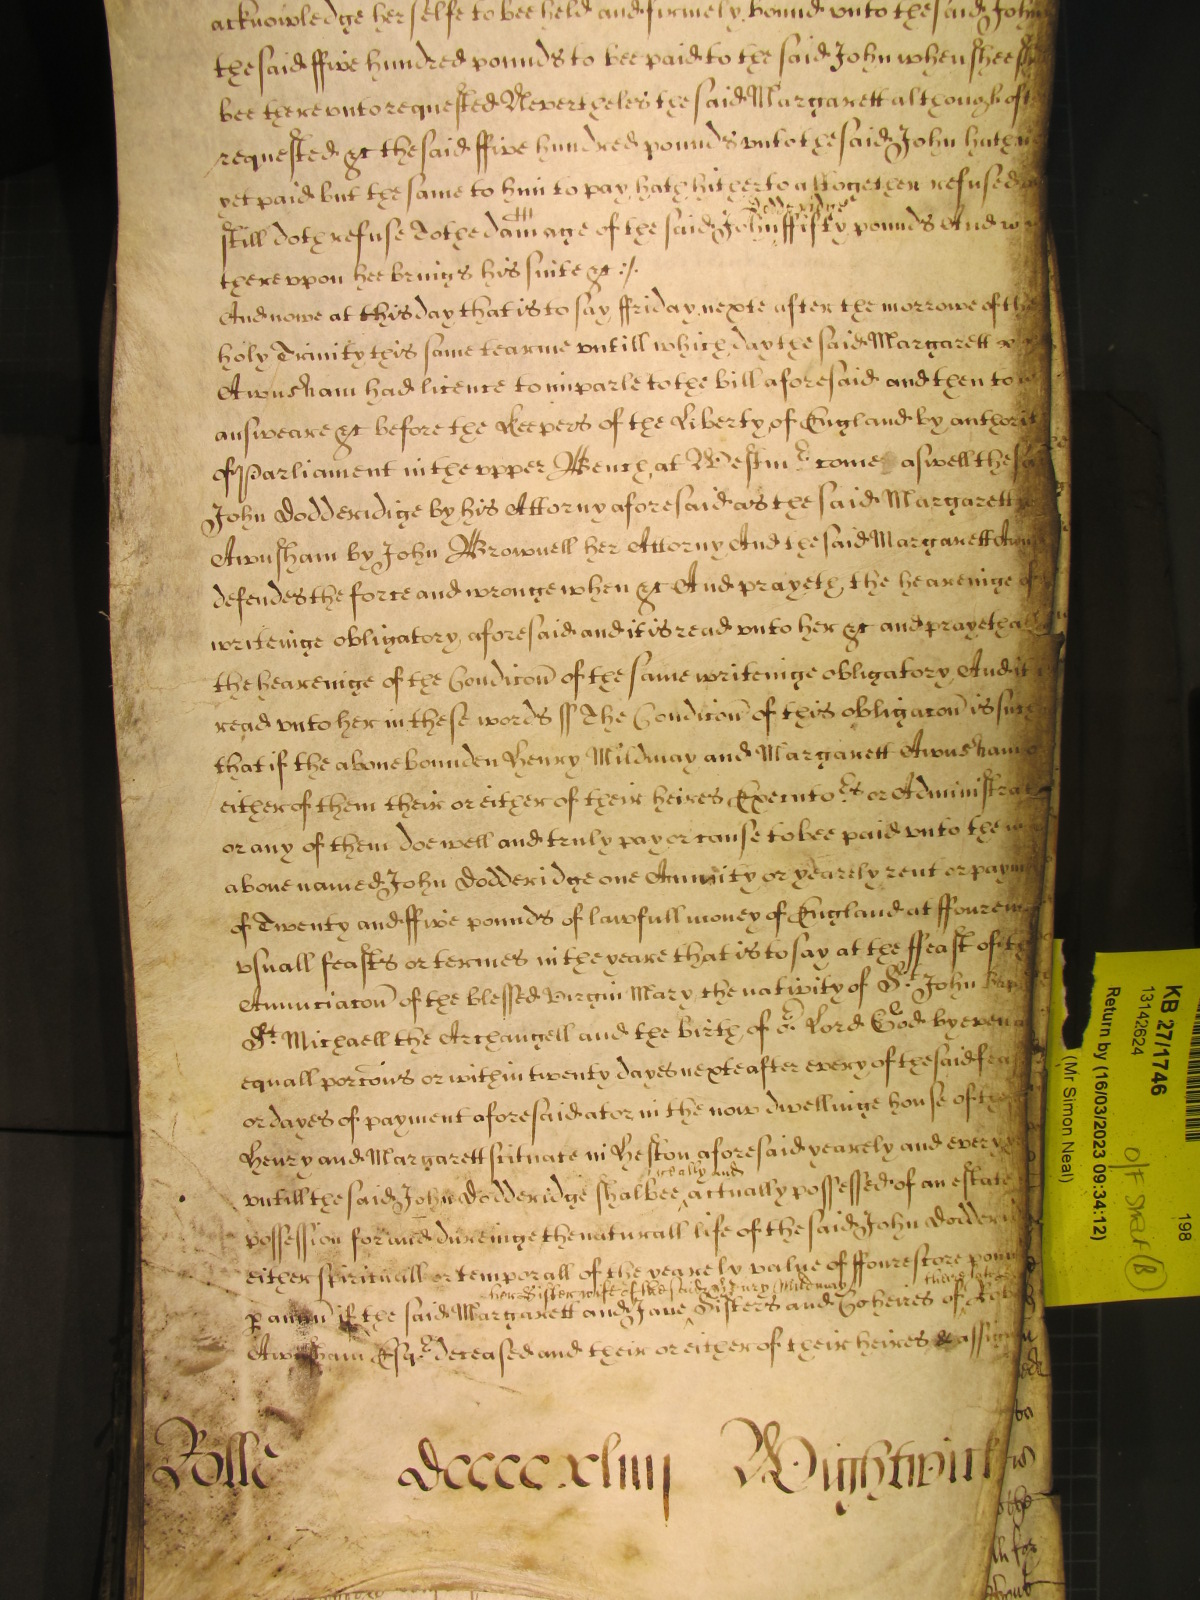 acknowledge her selfe to bee held and firmely bound vnto the said John
the said ffive hundred pounds to bee paid to the said John when shee
bee therevnto requested Nevertheles the said Margarett although
requested &c the said ffive hundred pounds vnto the said John hath
yet paid but the same to him to pay hath hitherto altogether refused
Dodderidge
still doth refuse To the damage of the said John ffifty pounds And
therevpon hee brings his suite &c
And nowe at this day that is to say ffriday nexte after the morrowe of the
holy Trinity this same tearme vntill which day the said Margarett
Awnsham had licence to imparle to the bill aforesaid and then to
answeare &c before the Keepers of the Liberty of England by authorit
of Parliament in the vpper Bench at Westmr come aswell the
John Dodderidige by his Attorny aforesaid as the said Margarett
Awnsham by John Brownell her Attorny And the said Margarett
defendes the force and wronge when &c And prayeth the hearenige of
writeinge obligatory aforesaid and it is read vnto her &c and prayeth
the hearenige of the Condicon of the same writeinge obligatory And it
read vnto her in these words ss The Condicon of this obligacon is such
that if the abovebounden Henry Mildmay and Margarett Awnsham
either of them their or either of their heires Executors or Administrat
or any of them doe well and truly pay or cause to bee paid vnto the
above named John Dodderidge one Annuity or yearely rent or paym
of Twenty and ffive pounds of lawfull money of England at ffoure
vsuall feasts or termes in the yeare that is to say at the ffeast of the
Anunciacon of the blessed virgin Mary the nativity of St John
St Michaell the Archangell and the birth of or Lord God by even
equall porcons or within twenty dayes nexte after every of the said
or dayes of payment aforesaid at or in the now dwellinge house of the
Henry and Margarett scituate in Heston aforesaid yearely and every
really and
vntill the said John Dodderidge shalbee actually possessed of an estate
possession for and dureinge the naturall life of the said John
either spirituall or temporall of the yearely value of ffourescore
her Sister wife of the said Henry Mildmay
p annu if the said Margarett and Jane Sisters and Coheires of
Awnsham Esqr deceased and their or either of their heires &
Rolle dccccxliiij Wightwick
KB 27/1746
13142624
Return by (16/03/2023 09:34:12)
(Mr Simon Neal)
198